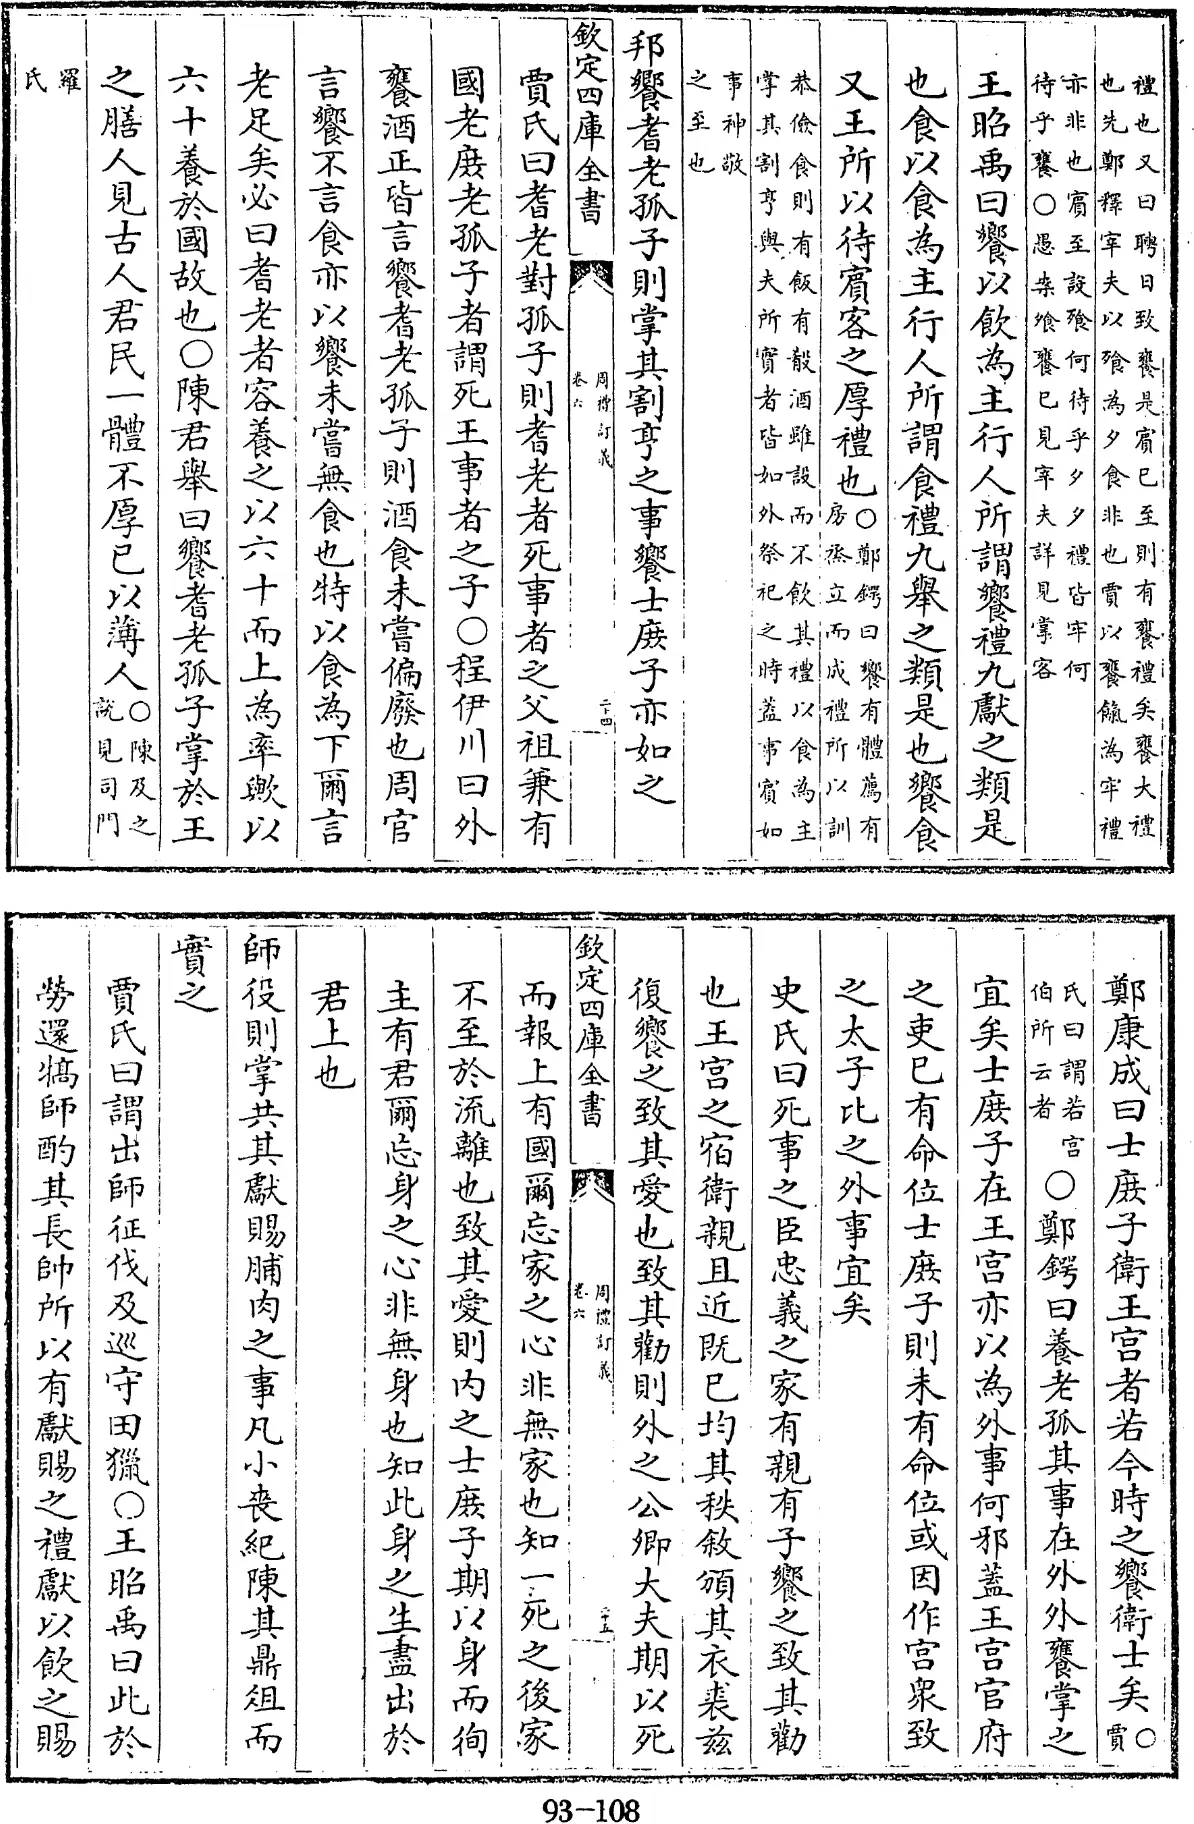 禮也又曰聘日致饔是賔已至則有饔禮矣饔大禮
也先鄭釋宰夫以飱為夕食非也賈以饔餼為牢禮
亦非也賔至設飱何待乎夕夕禮皆牢何
待乎饔○愚案飱饔已見宰夫詳見掌客
王昭禹曰饗以飲為主行人所謂饗禮九獻之類是
也食以食為主行人所謂食禮九舉之類是也饗食
又王所以待賔客之厚禮也○鄭鍔曰饗有體薦有
房烝立而成禮所以訓
恭儉食則有飯有殽酒雖設而不飲其禮以食為主
掌其割亨與夫所實者皆如外祭祀之時葢事賔如
事神敬
之至也
邦饗耆老孤子則掌其割亨之事饗士庻子亦如之
欽定四庫全書
周禮訂義
卷六
二十四
賈氏曰耆老對孤子則耆老者死事者之父祖兼有
國老庻老孤子者謂死王事者之子○程伊川曰外
饔酒正皆言饗耆老孤子則酒食未嘗偏廢也周官
言饗不言食亦以饗未嘗無食也特以食為下爾言
老足矣必曰耆老者容養之以六十而上為率歟以
六十養於國故也○陳君舉曰饗耆老孤子掌於王
之膳人見古人君民一體不厚已以薄人○陳及之
說見司門
羅
氏
鄭康成曰士庻子衛王宫者若今時之饗衛士矣○
賈
氏曰謂若宫
伯所云者
○鄭鍔曰養老孤其事在外外饔掌之
宜矣士庻子在王宫亦以為外事何邪蓋王宫官府
之吏已有命位士庻子則未有命位或因作宫衆致
之太子比之外事宜矣
史氏曰死事之臣忠義之家有親有子饗之致其勸
也王宫之宿衛親且近既已均其秩敘頒其衣裘兹
復饗之致其愛也致其勸則外之公卿大夫期以死
欽定四庫全書
周禮訂義
卷六
二十五
而報上有國爾忘家之心非無家也知一死之後家
不至於流離也致其愛則内之士庻子期以身而徇
主有君爾忘身之心非無身也知此身之生盡出於
君上也
師役則掌共其獻賜脯肉之事凡小喪紀陳其鼎俎而
實之
賈氏曰謂出師征伐及巡守田獵○王昭禹曰此於
勞還犒師酌其長帥所以有獻賜之禮獻以飲之賜
93-108